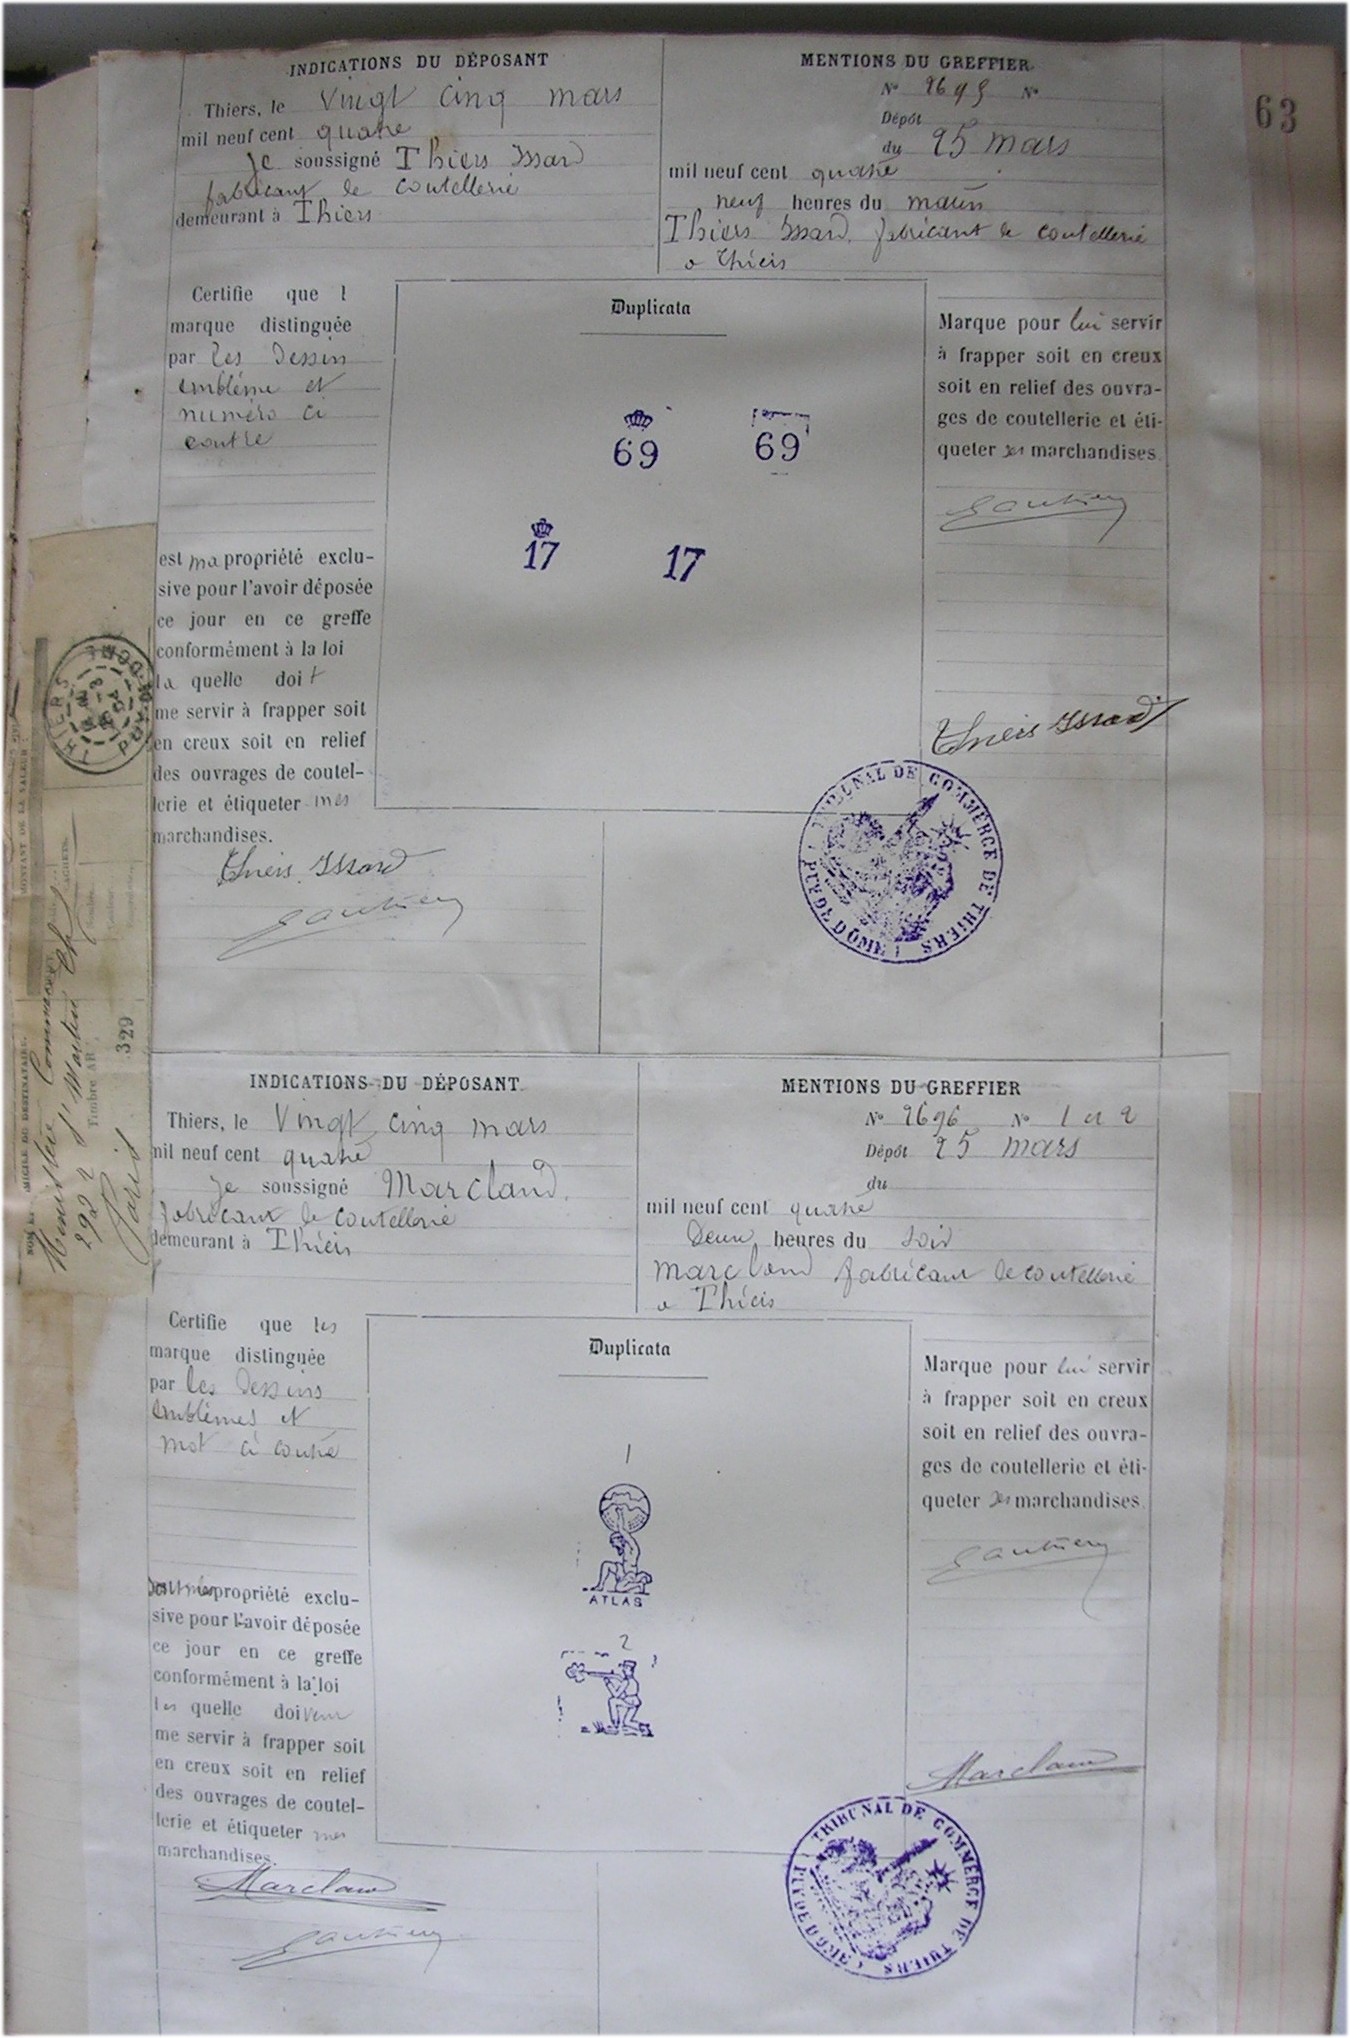 63
INDICATIONS DU DÉPOSANT
Thiers, le vingt cinq mars
mil neuf cent quatre
Je soussigné Thiers Issard
fabricant de coutellerie
demeurant à Thiers
MENTIONS DU GREFFIER
N° 2695 N°
Dépôt
du 25 mars
mil neuf cent quatre
neuf heures du matin
Thiers Issard fabricant de coutellerie
a Thiers
Certifie que l
marque distinguée
par les dessin
emblême et
numéro ci
contre
est ma propriété exclu-
sive pour l'avoir déposée
ce jour en ce greffe
conformément à la loi
la quelle doit
me servir à frapper soit
en creux soit en relief
des ouvrages de coutel-
lerie et étiqueter mes
marchandises.
Thiers Issard
Gautier
Duplicata
69 69
17 17
Marque pour lui servir
à frapper soit en creux
soit en relief des ouvra-
ges de coutellerie et éti-
queter ses marchandises.
Gautier
Thiers Issard
TRIBUNAL DE COMMERCE DE THIERS
PUY DE DOME
INDICATIONS DU DÉPOSANT
Thiers, le vingt cinq mars
mil neuf cent quatre
je soussigné Marcland
fabricant de coutellerie
demeurant à Thiers
MENTIONS DU GREFFIER
N° 2696 N° 1 et 2
Dépôt 25 mars
du
mil neuf cent quatre
Deux heures du soir
Marcland fabricant de coutellerie
a Thiers
Certifie que les
marque distinguée
par les dessins
emblêmes et
mot ci contre
propriété exclu-
sive pour l'avoir déposée
ce jour en ce greffe
conformément à la loi
les quelle doivent
me servir à frapper soit
en creux soit en relief
des ouvrages de coutel-
lerie et étiqueter mes
marchandises.
Marcland
Gautier
Duplicata
1
ATLAS
2
Marque pour lui servir
à frapper soit en creux
soit en relief des ouvra-
ges de coutellerie et éti-
queter ses marchandises.
Gautier
Marcland
TRIBUNAL DE COMMERCE DE THIERS
PUY DE DOME
THIERS
PUY-DE-DOME
MONTANT DE LA VALEUR
CACHETS
DOMICILE DU DESTINATAIRE.
Ministère Commerce
292 r St Martin
Timbre AR
Paris
329